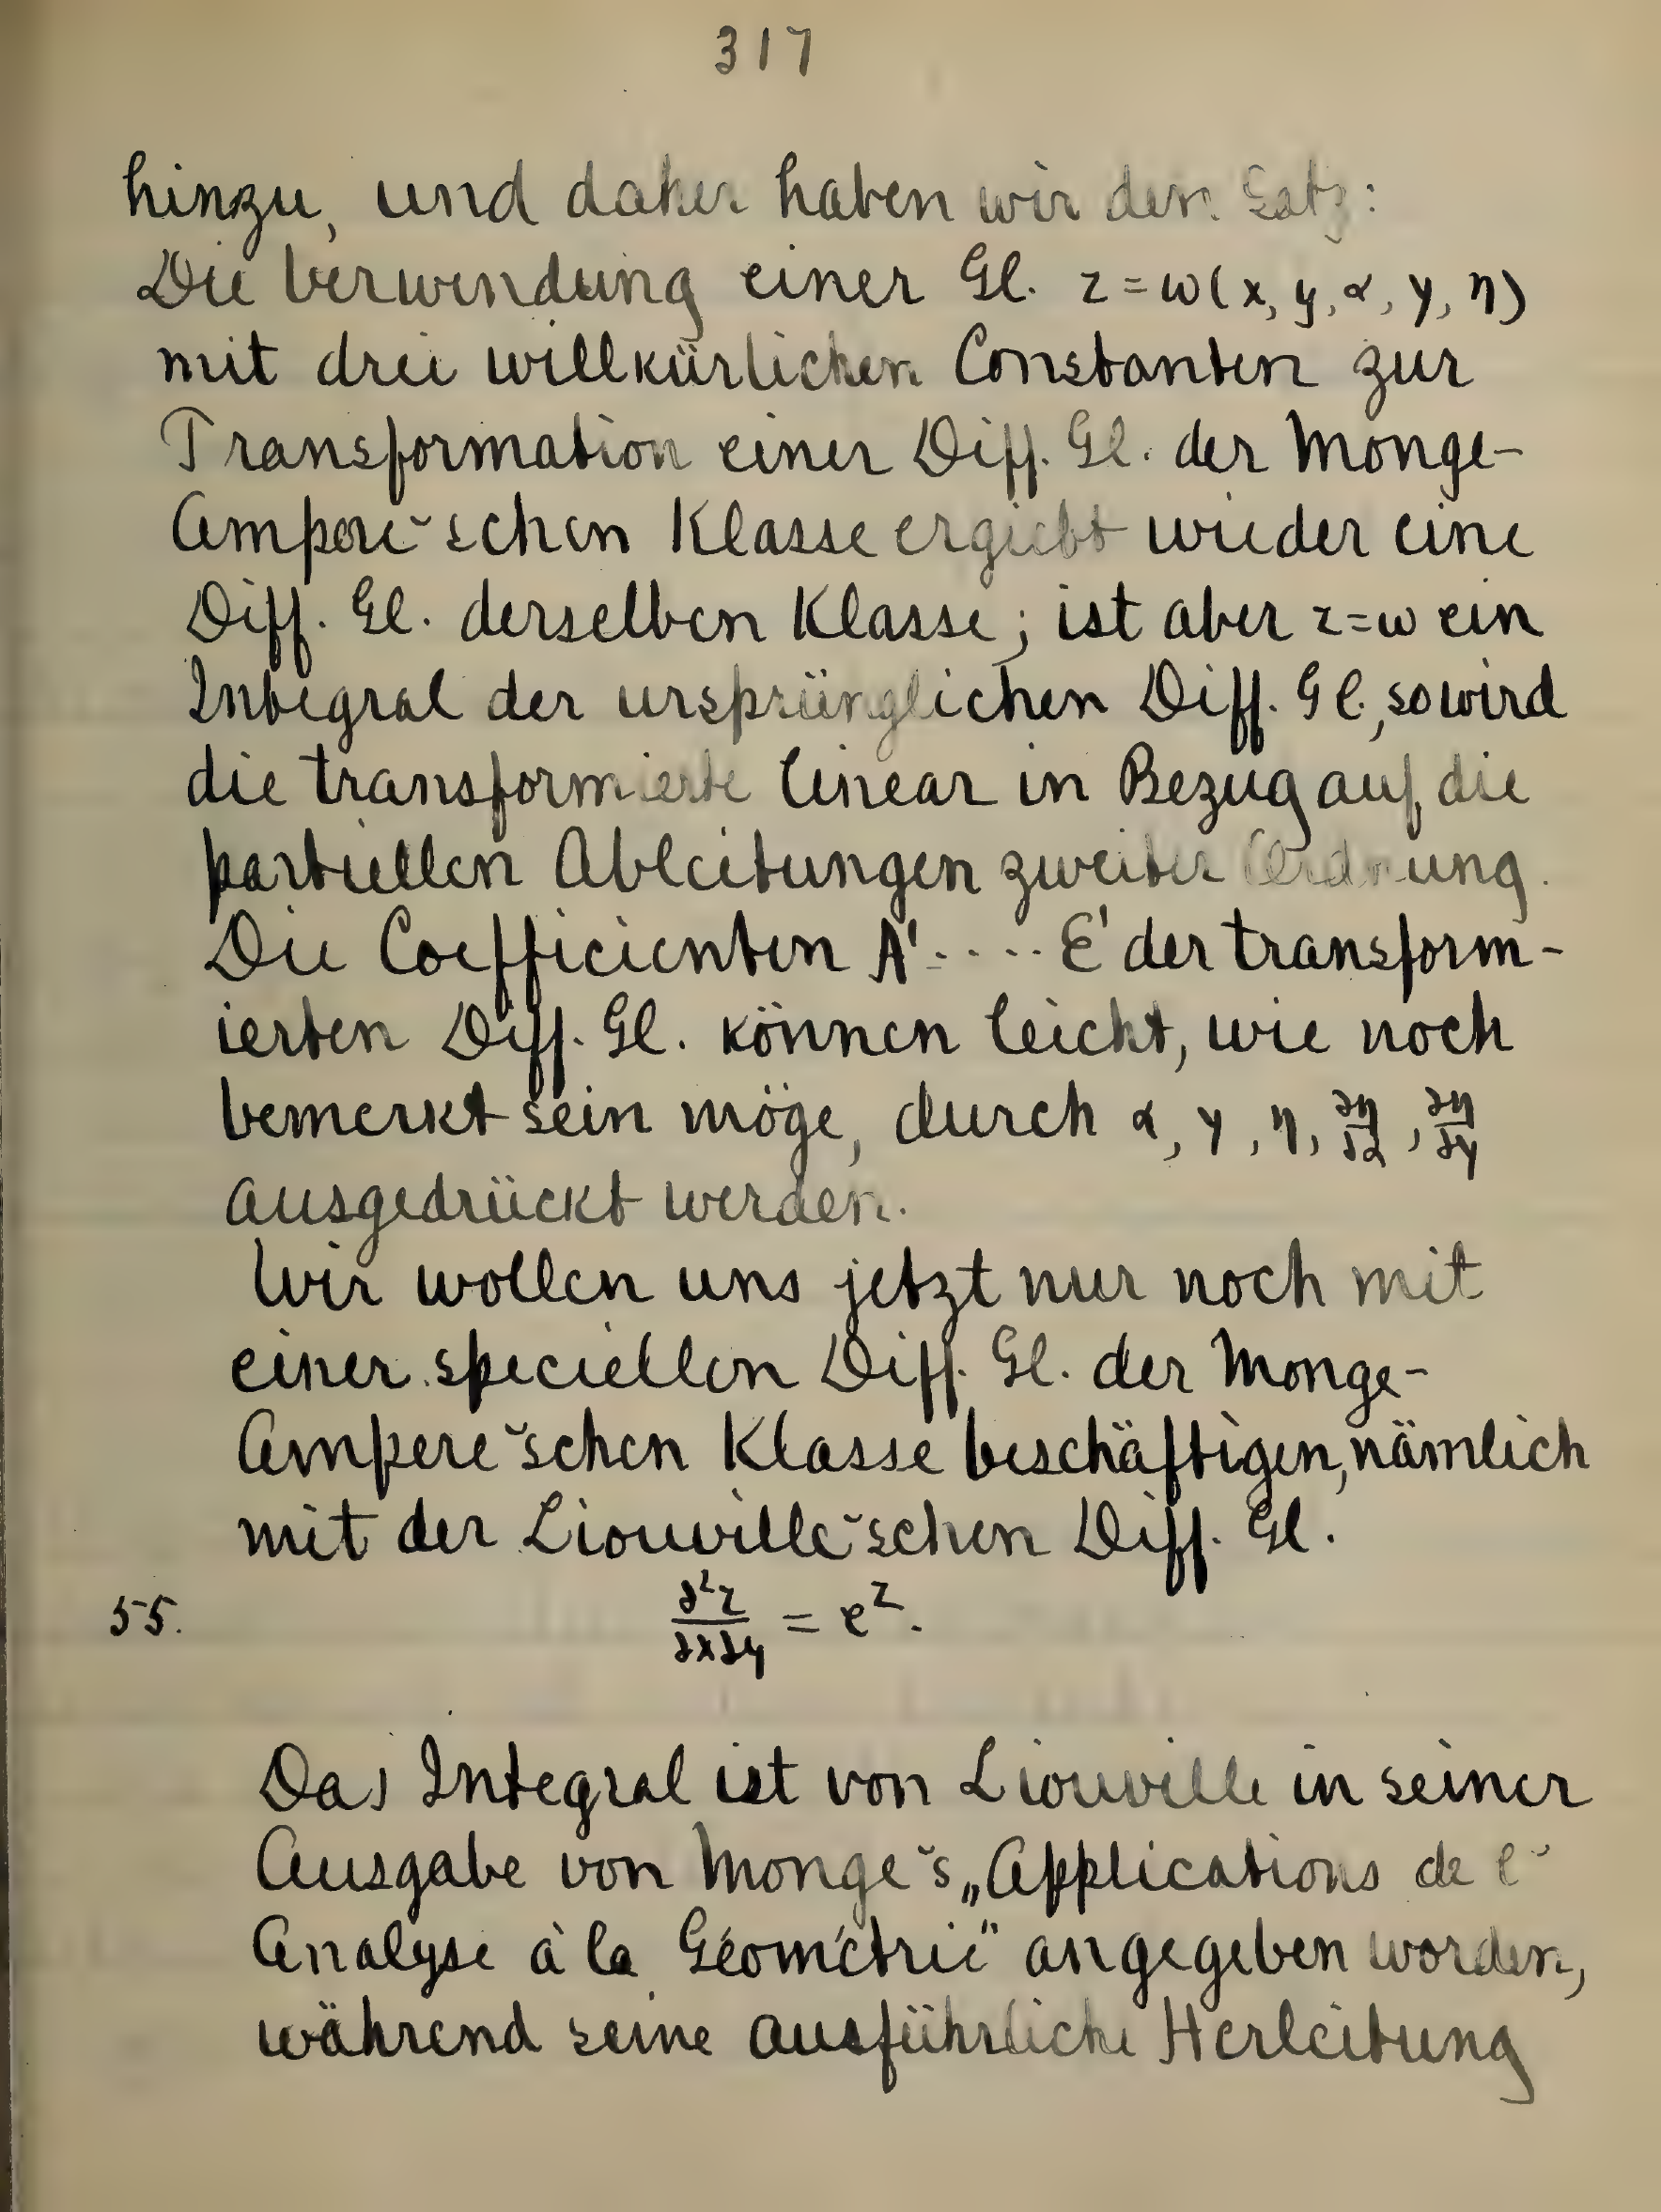 317
hinzu, und daher haben wir den Satz:
Die Verwendung einer Gl. z = ω(x, y, α, γ, η)
mit drei willkürlichen Constanten zur
Transformation einer Diff. Gl. der Monge-
Ampere'schen Klasse ergiebt wieder eine
Diff. Gl. derselben Klasse; ist aber z=ω ein
Integral der ursprünglichen Diff. Gl., so wird
die transformierte linear in Bezug auf die
partiellen Ableitungen zweiter Ordnung.
Die Coefficienten A'.....E' der transform-
ierten Diff. Gl. können leicht, wie noch
bemerkt sein möge, durch α, γ, η, ∂η/∂α, ∂η/∂γ
ausgedrückt werden.
Wir wollen uns jetzt nur noch mit
einer speciellen Diff. Gl. der Monge-
Ampere'schen Klasse beschäftigen, nämlich
mit der Liouville'schen Diff. Gl.
55. ∂²z/∂x∂y = e^z.
Das Integral ist von Liouville in seiner
Ausgabe von Monge's „Applications de l'
Analyse à la Géométrie" angegeben worden,
während seine ausführliche Herleitung